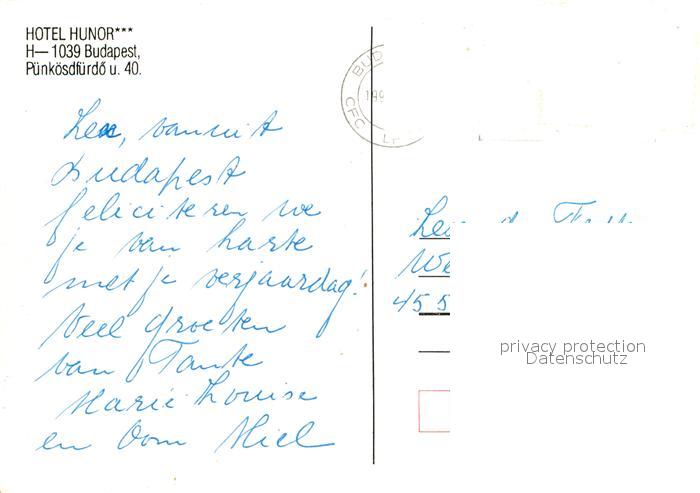 HOTEL HUNOR***
H—1039 Budapest,
Pünkösdfürdő u. 40.
BUD
199
CFC
Lex, vanuit
Budapest
feliciteren we
je van harte
met je verjaardag!
Veel groeten
van Tante
Marie Louise
en Oom Miel
We
45 5
privacy protection
Datenschutz